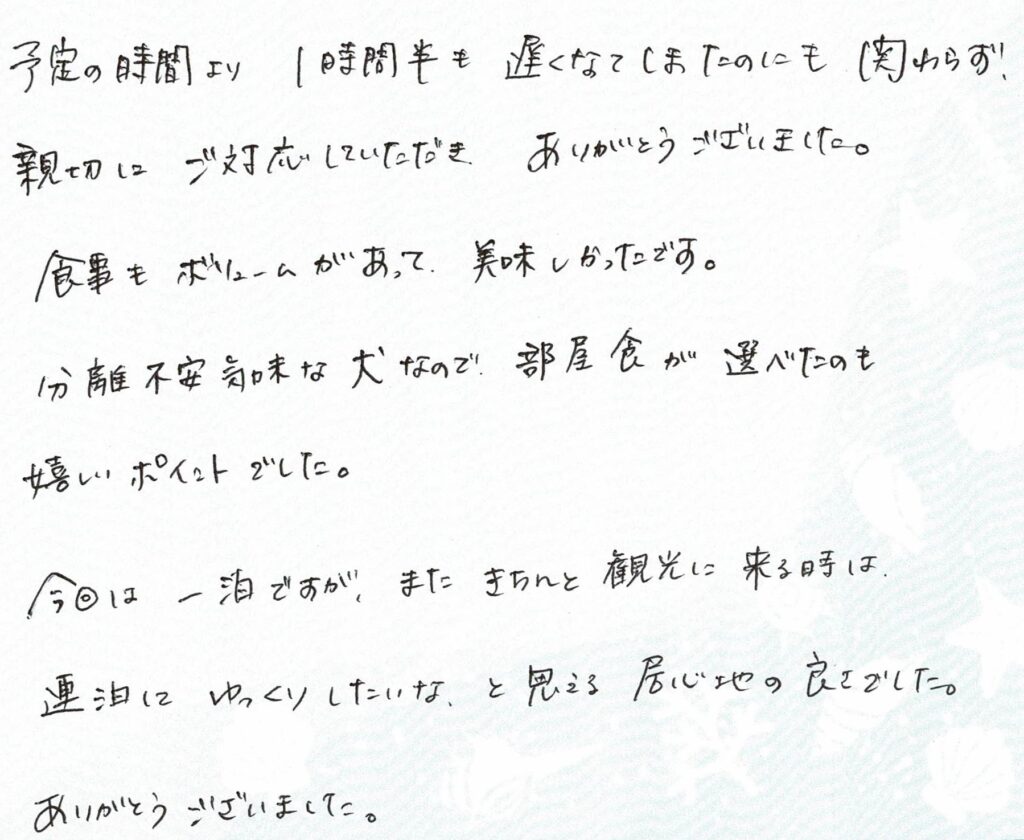 予定の時間より 1時間半も 遅くなてしまたのにも 関わらず、
親切に ご対応していただき、 ありがとうございました。
食事も ボリュームがあって、美味しかったです。
分離不安気味な犬なので、部屋食が 選べたのも
嬉しいポイントでした。
今回は 一泊ですが、また きちんと 観光に 来る時は、
連泊にて ゆっくりしたいな、と思える 居心地の良さでした。
ありがとうございました。